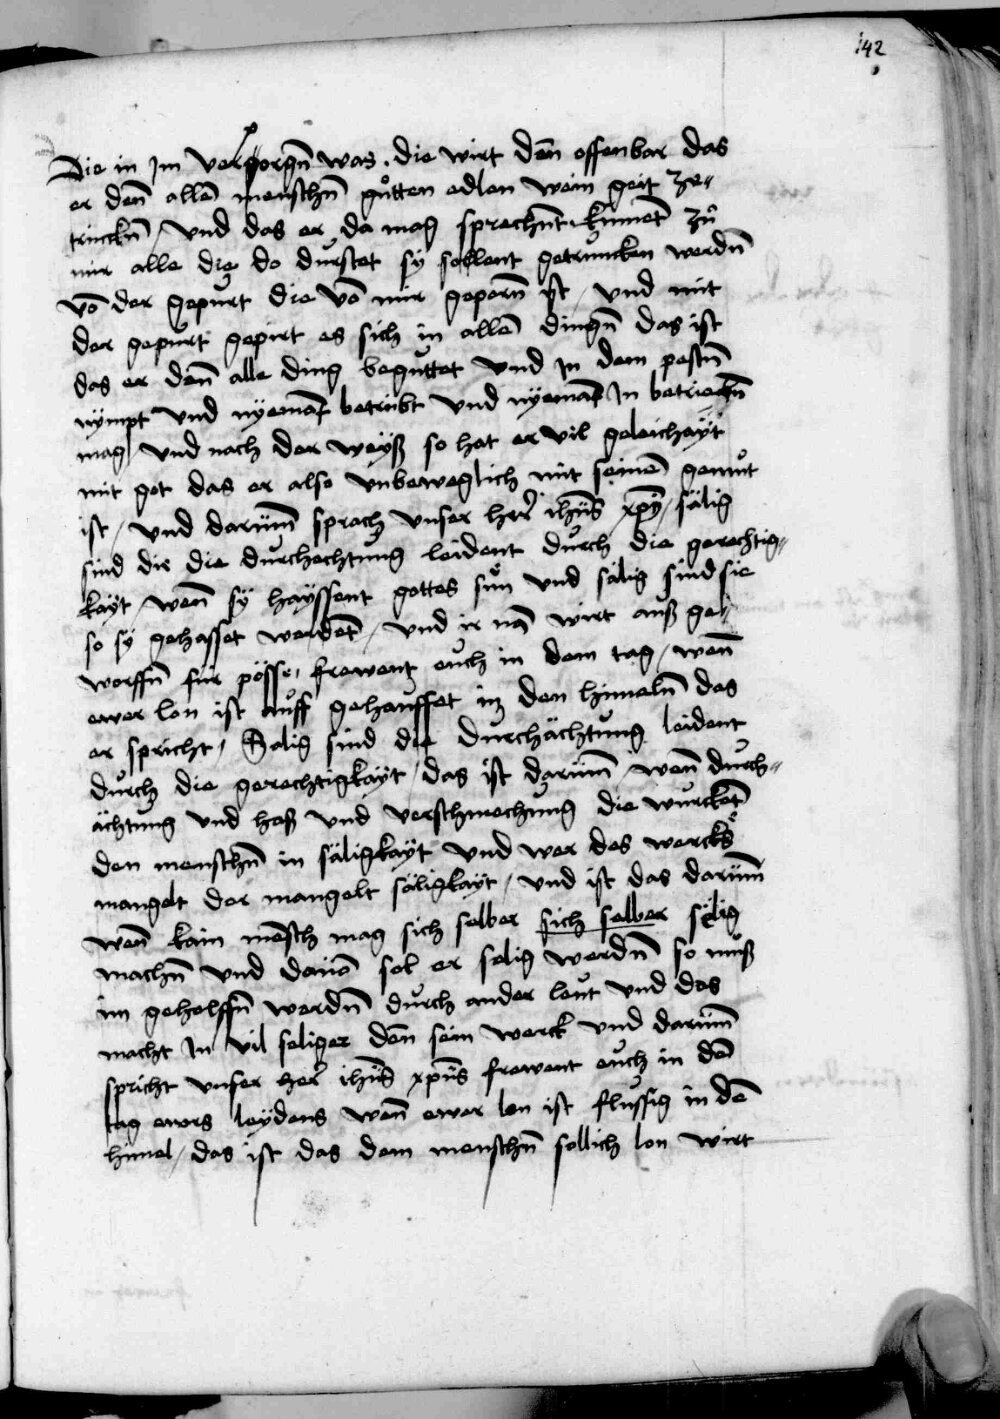 142
Die in im verporgn̄ was . die wirt den̄ offenbar das
er den̄ allē menschn̄ gůtten edlen wein geit ze=
trinckn̄ / vnd das er da mag sprechn̄t kummēt zů
mir alle die do durstet sÿ sollent getruncken werdn̄
vō der gepurt die vō mir geporn̄ ist / vnd mit
der gepurt gepirt es sich in allē dingn̄ das ist
das er den̄ alle ding begůttet vnd In dem pestn̄
nÿmpt vnd nÿemāt betrubt vnd nÿemāt In betriebn̄
mag / vnd nach der weÿß so hat er vil geleichaÿt
mit got das er also vnbeweglich mit seinē gemůt
ist / vnd darum̄ sprach vnser her̄ ihūs xp̄ÿ / sälig
sind die die durchechtung leident durch die gerechtig=
kaÿt / wen̄ sÿ haÿssent gottes sůn vnd sälig sind sie
so sÿ gehasset werdēt / vnd ir nā wirt auß ge=
worffn̄ für pösse / frewent euch in dem tag / wen̄
ewer lon ist auff gehauffet in den himeln̄ das
er spricht / Salig sind die durchächtung leident
durch die gerechtigkaÿt / das ist darum̄ / wen̄ durch=
ächtung vnd haß vnd verschmechung die wurckēt
den menschn̄ in säligkaÿt vnd wer des wercks
mangelt der mangelt säligkaÿt / vnd ist das darum̄
wen̄ kain mēsch mag sich selber sich selber sälig
machn̄ vnd dauō sol er selig werdn̄ so můß
im geholffn̄ werdn̄ durch ander leut vnd das
macht In vil seliger den̄ sein werck vnd darum̄
spricht vnser her̄ ihūs xp̄us frewent euch in dē
tag ewrs leÿdens wen̄ ewer lon ist flussig in dē
himel / das ist das dem menschn̄ sollich lon wirt